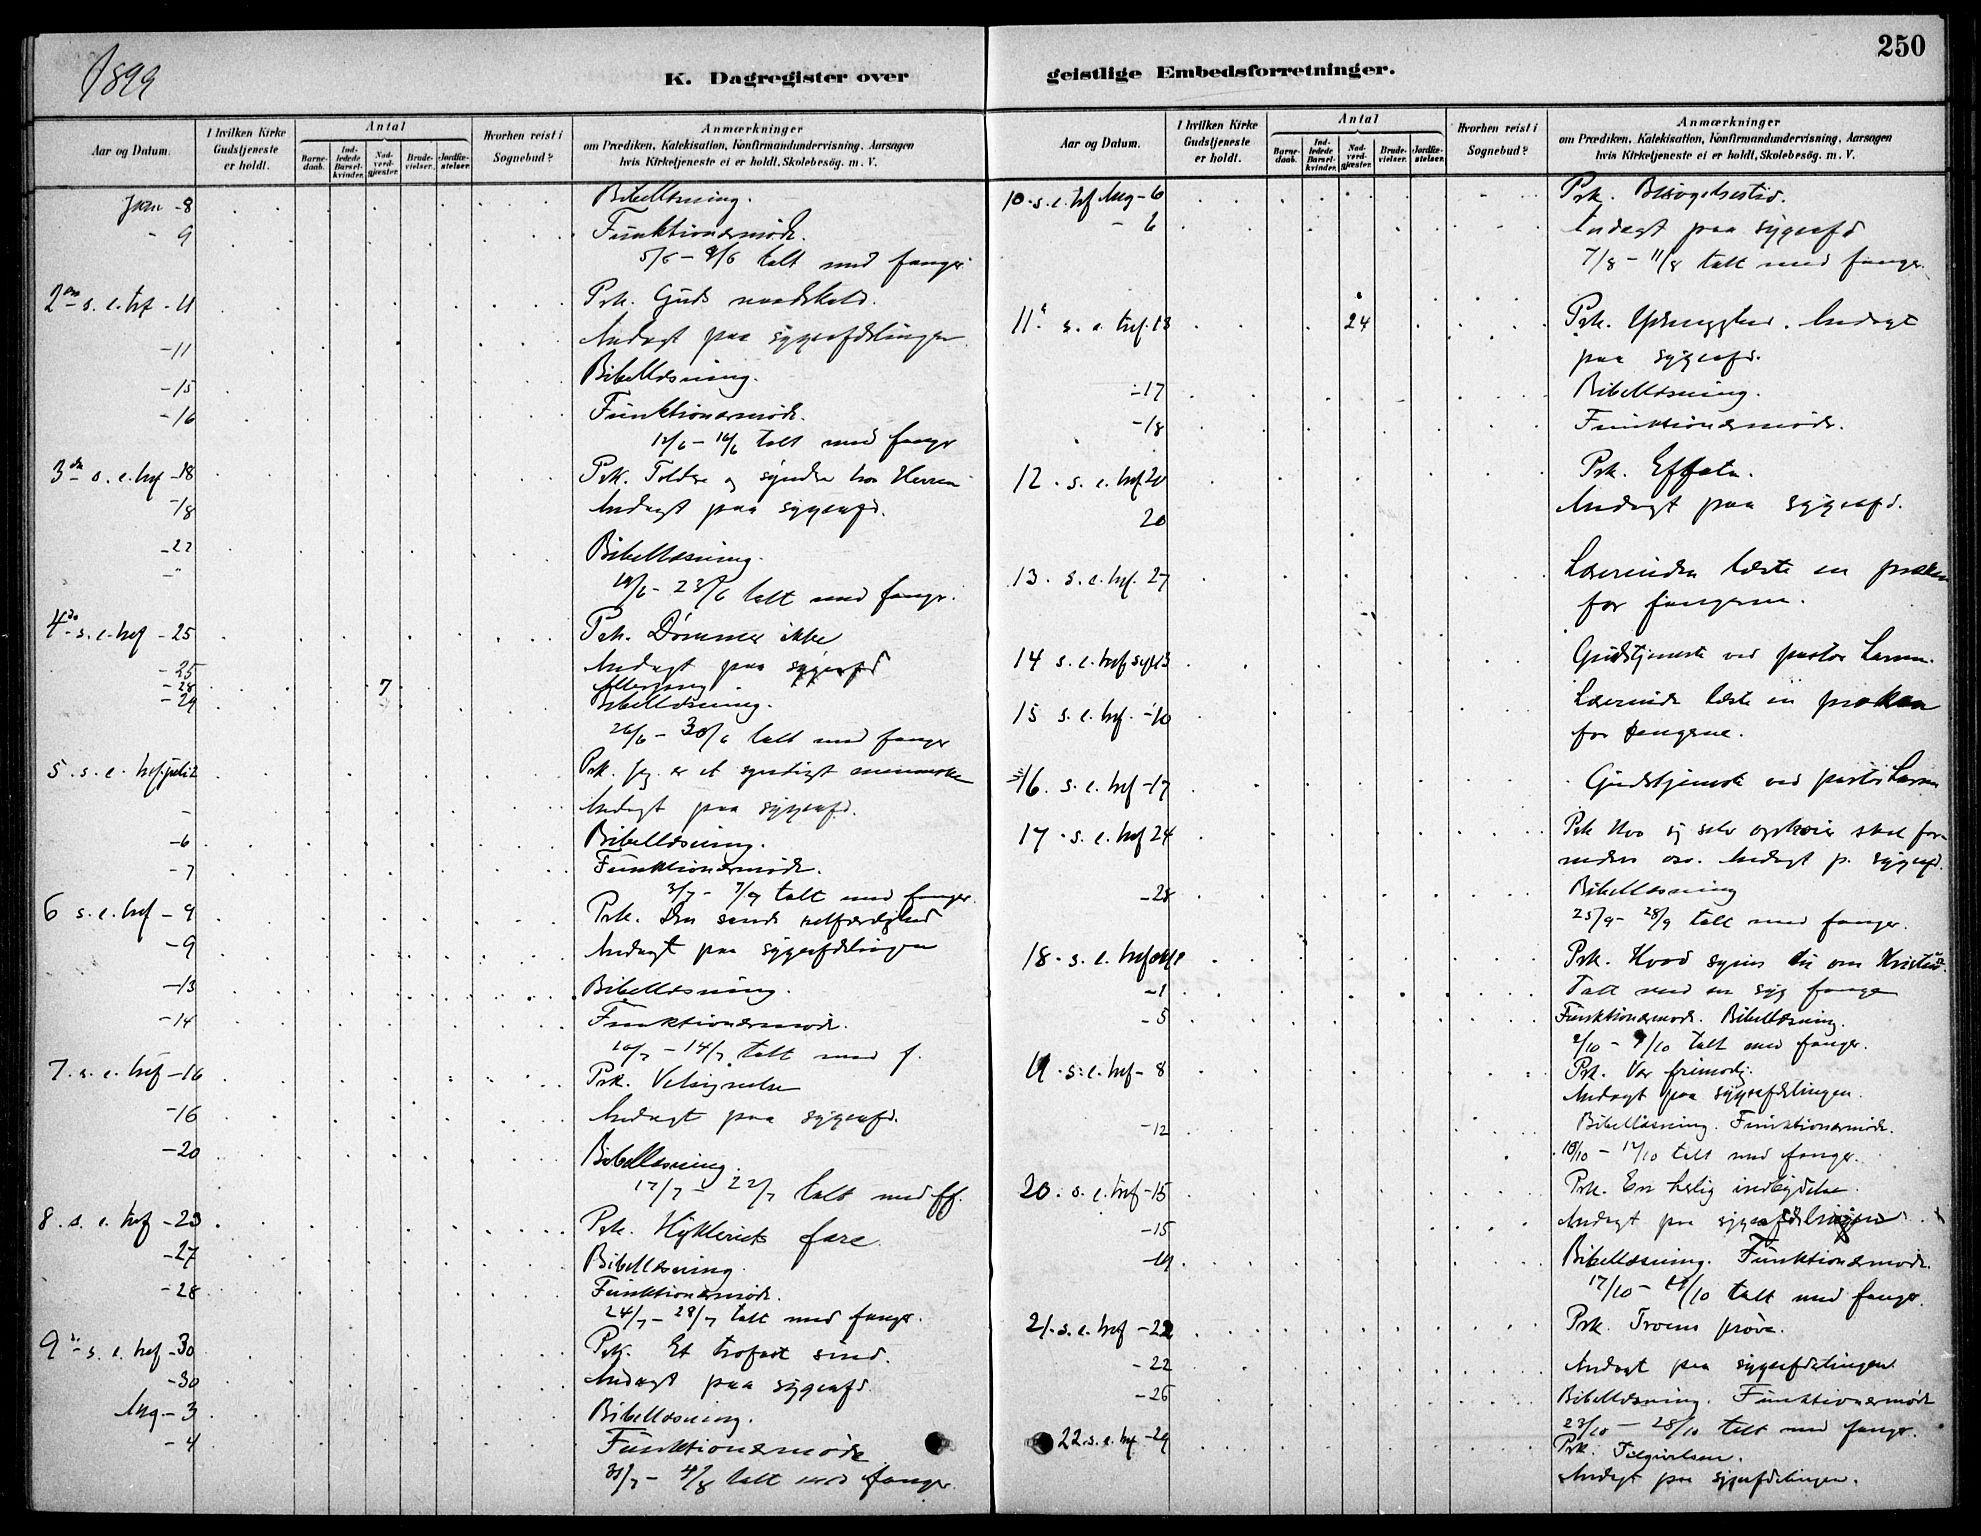 1899
K. Dagregister over
Aar og Datum.
I hvilken Kirke Gudstjeneste er holdt.
Antal
Barne-daab.
Ind-ledede Barsel-kvinder.
Nad-verd-gjæster.
Brude-vielser.
Jordfæ-stelser.
Hvorhen reist i Sognebud?
Anmærkninger
om Prædiken, Katekisation, Konfirmandundervisning, Aarsagen
hvis Kirketjeneste ei er holdt, Skolebesøg. m. V.
-8 Bibellæsning.
- 9 Funktionærmøde.
5/6 - 9/6 talt med fanger
2den s. e. tref - 11 Prk. Guds
-11 Andagt paa sygeafdelingen
-15 Bibellæsning.
-16 Funktionærmøde.
12/6 - 16/6 talt med fanger
3die s. e. tref -18 Prk. Toldere og syndere hos Herren
-18 Andagt paa sygeafd.
-22 Bibellæsning.
-"
19/6 - 23/6 talt med fanger.
4de s. e. tref -25 Prk. Dømmer ikke
-25 Andagt paa sygeafd
-28 7 Altergang
-29 Bibellæsning.
26/6 - 30/6 talt med fanger
5. s. e. tref. juli 2 Prk. Jeg er et syndigt menneske
- Andagt paa sygeafd.
-6 Bibellæsning.
-7 Funktionærmøde.
3/7 - 7/7 talt med fanger.
6 s. e. tref - 9 Prk. Den sande retfærdighed
-9 Andagt paa sygeafdelingen
-13 Bibellæsning.
-14 Funktionærmøde.
10/7 - 14/7 talt med f.
7. s. e. tref -16 Prk. Velsignelse
-16 Andagt paa sygeafd.
-20 Bibellæsning.
17/7 - 22/7 talt med ff.
8. s. e. tref -23. Prk. Hykleriets fare.
-27 Bibellæsning.
-28 Funktionærmøde.
24/7 - 28/7 talt med fanger.
9de s. e. tref -30 Prk. Et trofast sind.
-30 Andagt paa sygeafd.
Aug - 3 Bibellæsning.
-4 Funktionærmøde
31/7 - 4/8 talt med fanger.
250
geistlige Embedsforretninger.
Aar og Datum.
I hvilken Kirke Gudstjeneste er holdt.
Antal
Barne-daab.
Ind-ledede Barsel-kvinder.
Nad-verd-gjæster.
Brude-vielser.
Jordfæ-stelser.
Hvorhen reist i Sognebud?
Anmærkninger
om Prædiken, Katekisation, Konfirmandundervisning, Aarsagen
hvis Kirketjeneste ei er holdt, Skolebesøg. m. V.
10. s. e. tref Aug - 6 Prk. Besøgelsestid.
- 6 Andagt paa sygeafd
7/8 - 11/8 talt med fanger.
11te s. e. tref. 13 24 Prk. Andagt
paa sygeafd.
-17 Bibellæsning.
-18 Funktionærmøde.
12. s. e. tref 20 Prk. Effata.
20 Andagt paa sygeafd.
13. s. e. tref. 27 Lærerinden læste en præken
for fangerne.
14 s. e. tref sept 3 Gudstjeneste ved pastor Larsen.
15 s. e. tref. -10 Lærerinde læste en præken
for fangerne.
16. s. e. tref -17 Gudstjeneste ved pastor Larsen
17. s. e. tref 24 Prk Hvo sig selv ophøier skal for-
nedres osv. Andagt p. sygeafd.
-28 Bibellæsning
25/9 - 28/9 talt med fanger.
18. s. e. tref okt 1 Prk. Hvad synes du om Kristus.
-1 Talt med en syg fange
-5 Funktionærmøde. Bibellæsning.
2/10 - 7/10 talt med fanger.
19. s. e. tref - 8 Prk. Vær frimodig.
Andagt paa sygeafdelingen.
-12 Bibellæsning. Funktionærmøde.
10/10 - 14/10 talt med fanger.
20. s. e. tref -15 Prk. En herlig indbydelse.
-15 Andagt paa sygeafdelingen
-19 Bibellæsning. Funktionærmøde.
17/10 - 21/10 talt med fanger.
21. s. e. tref -22 Prk. Troens prøve.
-22 Andagt paa sygeafdelingen
-26 Bibellæsning. Funktionærmøde
23/10 - 28/10 talt med fanger.
22. s. e. tref -29 Prk. Tilgivelsen.
Andagt paa sygeafdelingen.